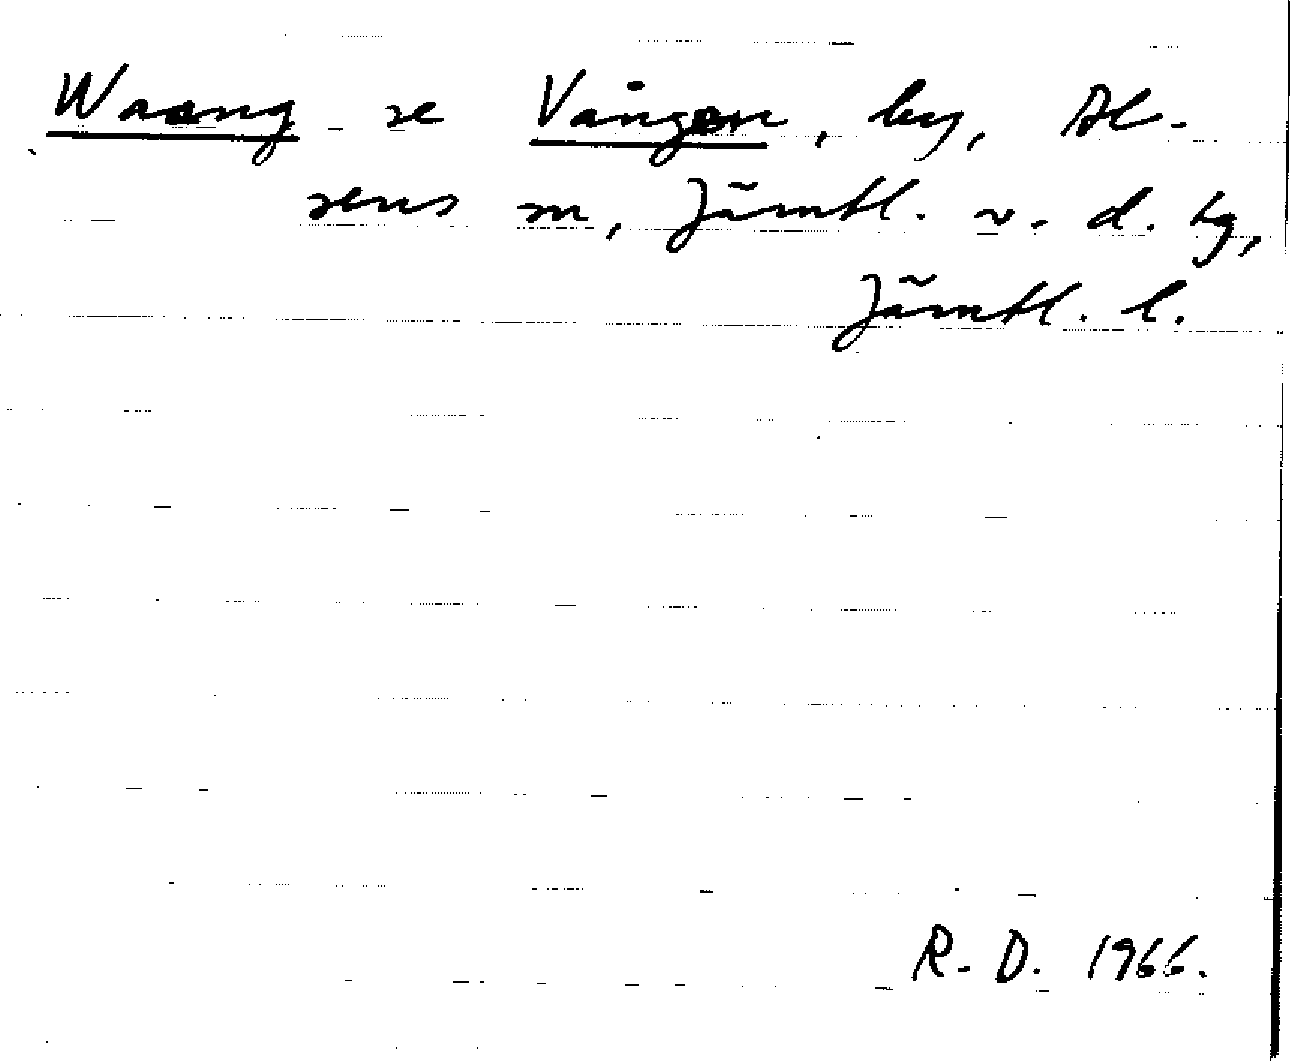 Waang se Vången, by, Al-
sens sn, Jämtl. v. d. tg,
Jämtl. l.
R. D. 1966.